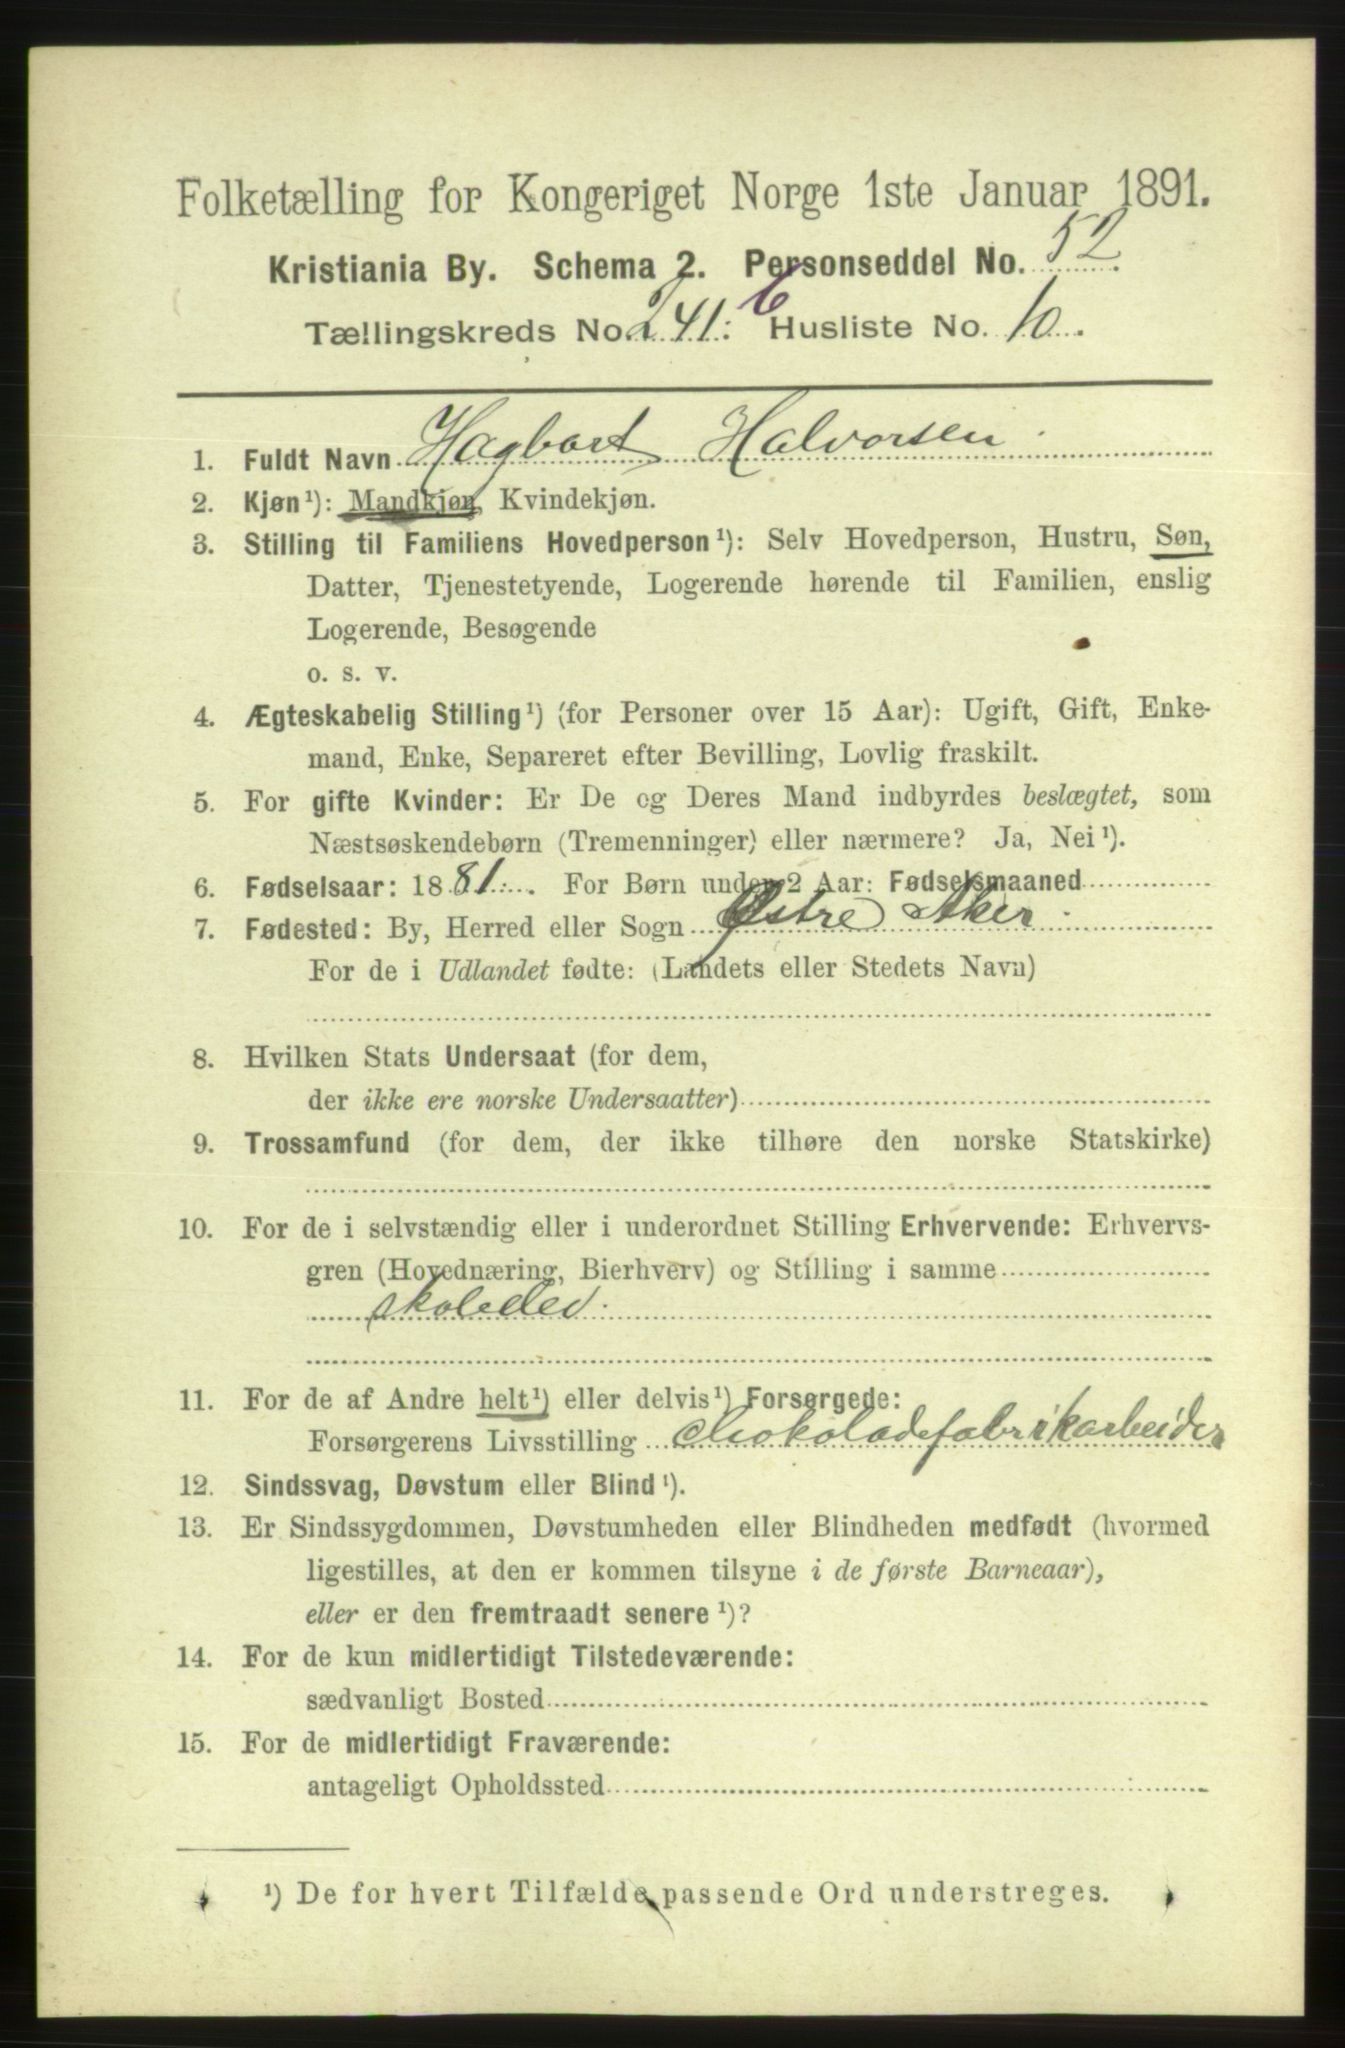 Folketælling for Kongeriget Norge 1ste Januar 1891.
Kristiania By. Schema 2. Personseddel No. 52.
6
Tællingskreds No. 241: Husliste No. 10.
1. Fuldt Navn Hagbart Halvorsen.
2. Kjøn¹): Mandkjøn, Kvindekjøn.
3. Stilling til Familiens Hovedperson¹): Selv Hovedperson, Hustru, Søn,
Datter, Tjenestetyende, Logerende hørende til Familien, enslig
Logerende, Besøgende
o. s. v.
4. Ægteskabelig Stilling¹) (for Personer over 15 Aar): Ugift, Gift, Enke-
mand, Enke, Separeret efter Bevilling, Lovlig fraskilt.
5. For gifte Kvinder: Er De og Deres Mand indbyrdes beslægtet, som
Næstsøskendebørn (Tremenninger) eller nærmere? Ja, Nei¹).
6. Fødselsaar: 1881. For Børn under 2 Aar: Fødselsmaaned
7. Fødested: By, Herred eller Sogn Østre Aker.
For de i Udlandet fødte: (Landets eller Stedets Navn)
8. Hvilken Stats Undersaat (for dem,
der ikke ere norske Undersaatter)
9. Trossamfund (for dem, der ikke tilhøre den norske Statskirke)
10. For de i selvstændig eller i underordnet Stilling Erhvervende: Erhvervs-
gren (Hovednæring, Bierhverv) og Stilling i samme
skoleelev.
11. For de af Andre helt¹) eller delvis¹) Forsørgede:
Forsørgerens Livsstilling chokoladefabrikarbeider
12. Sindssvag, Døvstum eller Blind¹).
13. Er Sindssygdommen, Døvstumheden eller Blindheden medfødt (hvormed
ligestilles, at den er kommen tilsyne i de første Barneaar),
eller er den fremtraadt senere¹)?
14. For de kun midlertidigt Tilstedeværende:
sædvanligt Bosted
15. For de midlertidigt Fraværende:
antageligt Opholdssted
¹) De for hvert Tilfælde passende Ord understreges.